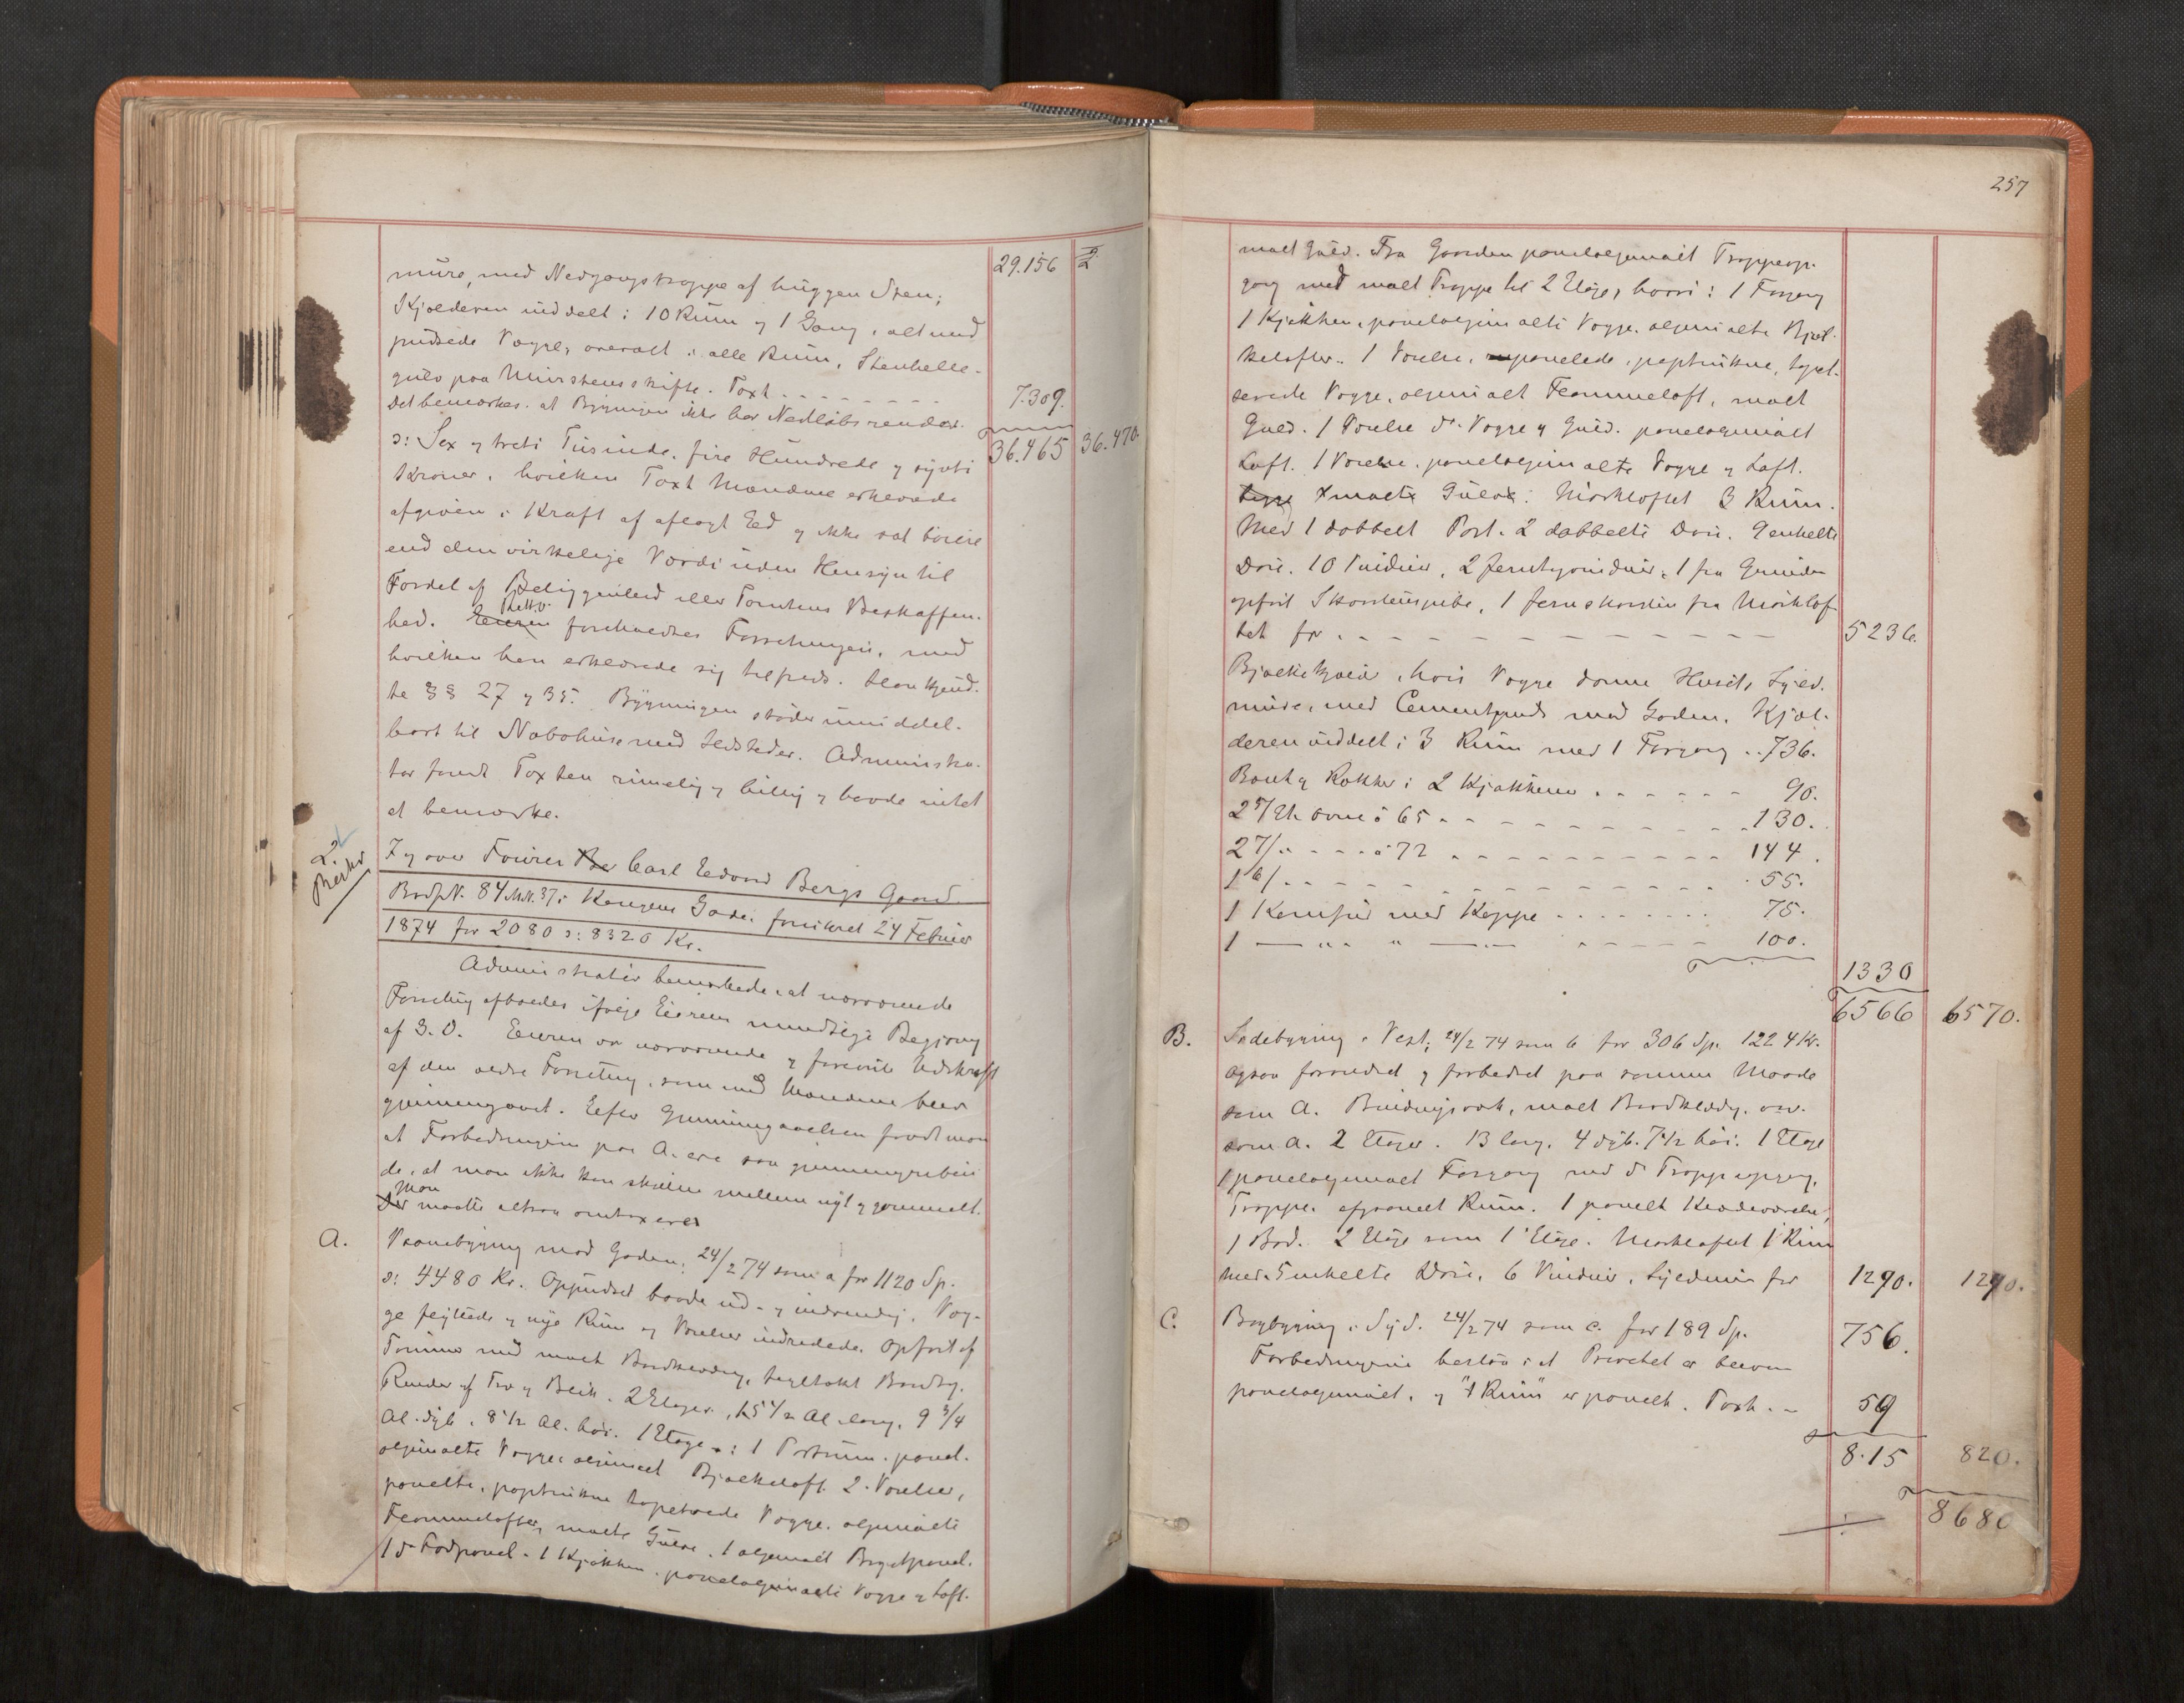 mure, med Nedgangstrappe af huggen Sten; 29.156
Kjælderen inddelt i 10 Rum og 1 Gang, alt med
pudsede Vægge, overalt i alle Rum, Stenhelle-
gulv paa Murstensskifte. Taxt 7.309.
Det bemærkes at Bygningen ikke har Nedløbsrender.
ɔ: Sex og treti Tusinde, fire Hundrede og sytti 36.465 36.470
Kroner, hvilken Taxt Mændene erklærede
afgiven i Kraft af aflagt Ed og ikke sat høiere
end den virkelige Værdi uden Hensyn til
Fordel af Beliggenhed eller Tomtens Beskaffen-
hed. Eieren foreholdtes Forretningen, med
hvilken han erklærede sig tilfreds. Han kjend-
te §§ 27 og 35. Bygningen støder umiddel-
bart til Nabohuse med Ildsteder. Administra-
tor fandt Taxten rimelig og billig og havde intet
at bemærke.
2.
I og over Fourer Carl Edvard Bergs Gaard
BrdfN. 84 M.N. 37 i Kongens Gade, forsikret 24 Februar
1874 for 2080 ɔ: 8320 Kr.
Administrator bemærkede, at nærværende
Forretning afholdes ifølge Eierens mundtlige Begjæring
af G. D. Eieren var nærværende og foreviste Udskrift
af den ældre Forretning, som med Mændene blev
gjennemgaaet. Efter Gjennemgaaelsen fandt man
at Forbedringerne paa A. ere saa gjennemgriben-
de, at man ikke kan skjelne mellem nyt og gammelt.
Man maatte altsaa omtaxeres
A. Vaanebygning mod Gaden, 24/2 74 som a for 1120 Sp.
ɔ: 4480 Kr. Oppudset baade ud- og indvendig. Væg-
ge flyttede og nye Rum og Værelser indredede. Opført af
Tømmer med malt Bordklædning, tegltækt Bordtag.
Render af Træ og Blik. 2 Etager, 15 1/2 Al. lang, 9 3/4
Al. dyb, 8 1/2 Al. høi. 1 Etage: 1 Portrum, panel.
oljemalte Vægge, oljemalt Bjælkeloft. 2 Værelser,
panelte, paptrukne tapetserede Vægge, oljemalte
Flammelofter, malte Gulve, 1 oljemalt Brystpanel.
1 do Fodpanel. 1 Kjøkken, paneloljemalte Vægge og Loft.
257
malt Gulv. Fra Gaarden paneloljemalt Trappeop-
gang med malt Trappe til 2 Etage, hvori: 1 Forgang
1 Kjøkken, paneloljemalte Vægge, oljemalte Bjæl-
kelofter. 1 Værelse, panelede, paptrukne, tapet-
serede Vægge, oljemalt Flammeloft, malt
Gulv. 1 Værelse do Vægge og Gulv, paneloljemalt
Loft. 1 Værelse, paneloljemalte Vægge og Loft.
malt Gulv. Mørkloftet 3 Rum.
Med 1 dobbelt Port. 2 dobbelte Døre. 9 enkelte
Døre. 10 Vinduer, 2 Jerntagvinduer, 1 fra Grunden
opført Skorstenspibe, 1 Jernskorsten fra Mørklof-
tet for 5236.
Bjælkekjælder, hvis Vægge danne Husets Syld-
mure, med Cementpuds mod Gaden. Kjæl-
deren inddelt i 3 Rum med 1 Forgang 736.
Bænk og Rækker i 2 Kjøkkener 90.
2 5/ Et. Ovne à 65 130.
2 7/ à 72 144.
1 6/ 55.
1 Komfur med Kappe 75.
1 100.
1330
6566 6570.
B. Sidebygning i Vest, 24/2 74 som b for 306 Sp. 1224 Kr.
ogsaa forandret og forbedret paa samme Maade
som A. Bindingsværk, malt Bordklædn. osv.
som A. 2 Etager. 13 lang, 4 dyb, 7 1/2 høi. 1 Etage
1 paneloljemalt Forgang med do Trappeopgang,
Trappe, afpanelt Rum. 1 panelt Kladeværelse,
1 Bod. 2 Etage som 1' Etage. Mørkloftet 1 Rum
med 5 enkelte Døre, 6 Vinduer, Syldmur for 1290. 1290.
C. Bagbygning i Syd. 24/2 74 som c. for 189 Sp. 756.
Forbedringerne bestaa i at Privetet er bleven
paneloljemalt, og "1 Rum" er panelt. Taxt 59
8.15 820.
8680